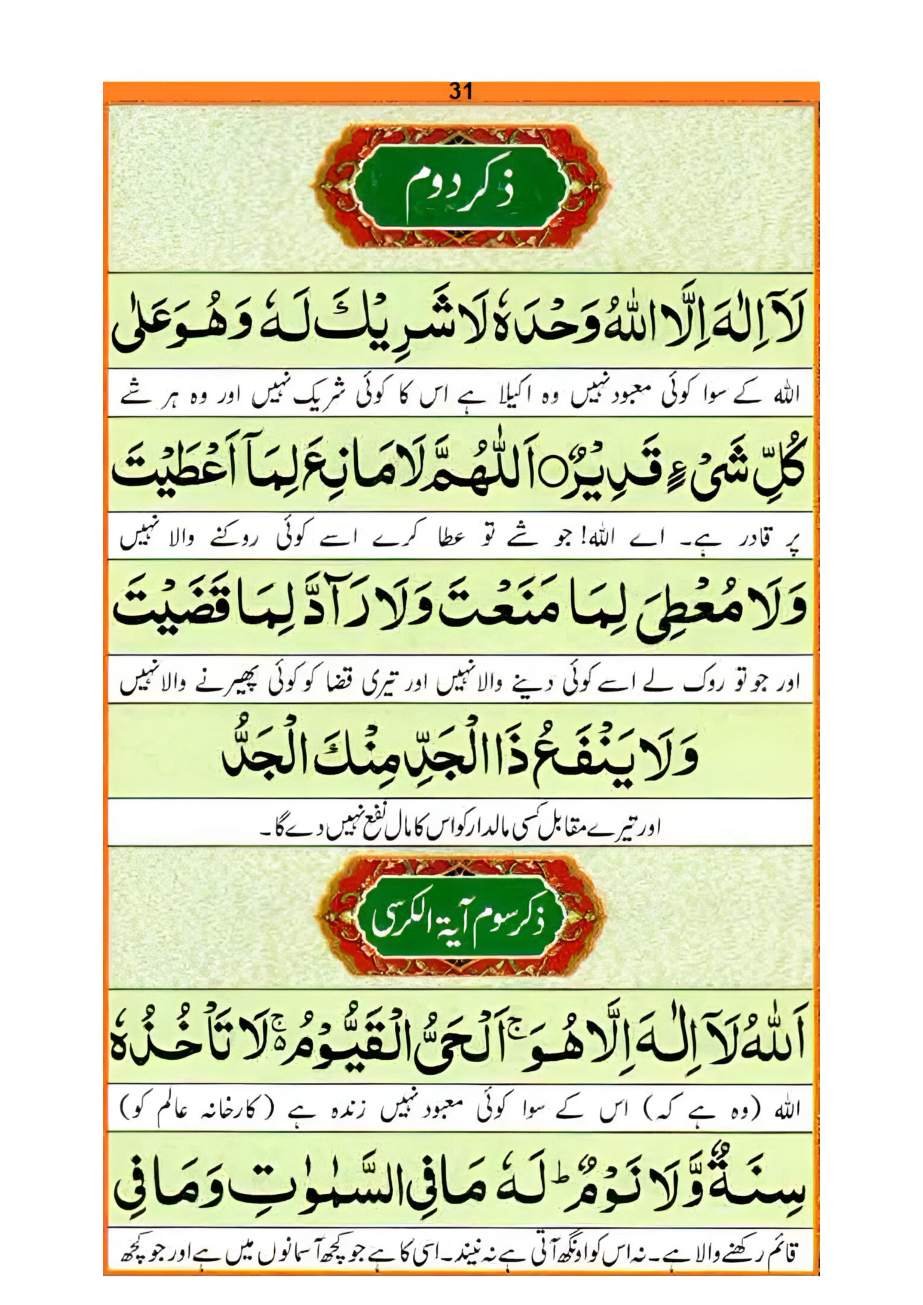 31
ذکر دوم
لَآ اِلٰهَ اِلَّا اللّٰهُ وَحْدَهٗ لَا شَرِيْكَ لَهٗ وَهُوَ عَلٰى
اللہ کے سوا کوئی معبود نہیں وہ اکیلا ہے اس کا کوئی شریک نہیں اور وہ ہر شے
كُلِّ شَیْءٍ قَدِيْرٌ○ اَللّٰهُمَّ لَا مَانِعَ لِمَآ اَعْطَيْتَ
پر قادر ہے۔ اے اللہ! جو شے تو عطا کرے اسے کوئی روکنے والا نہیں
وَلَا مُعْطِیَ لِمَا مَنَعْتَ وَلَا رَآدَّ لِمَا قَضَيْتَ
اور جو تو روک لے اسے کوئی دینے والا نہیں اور تیری قضا کو کوئی پھیرنے والا نہیں
وَلَا يَنْفَعُ ذَا الْجَدِّ مِنْكَ الْجَدُّ
اور تیرے مقابل کسی مالدار کو اس کا مال نفع نہیں دے گا۔
ذکر سوم آیۃ الکرسی
اَللّٰهُ لَآ اِلٰهَ اِلَّا هُوَ ۚ اَلْحَیُّ الْقَيُّوْمُ ۚ لَا تَاْخُذُهٗ
اللہ (وہ ہے کہ) اس کے سوا کوئی معبود نہیں زندہ ہے (کارخانہ عالم کو)
سِنَةٌ وَّلَا نَوْمٌ ؕ لَهٗ مَا فِی السَّمٰوٰتِ وَمَا فِی
قائم رکھنے والا ہے۔ نہ اس کو اونگھ آتی ہے نہ نیند۔ اسی کا ہے جو کچھ آسمانوں میں ہے اور جو کچھ